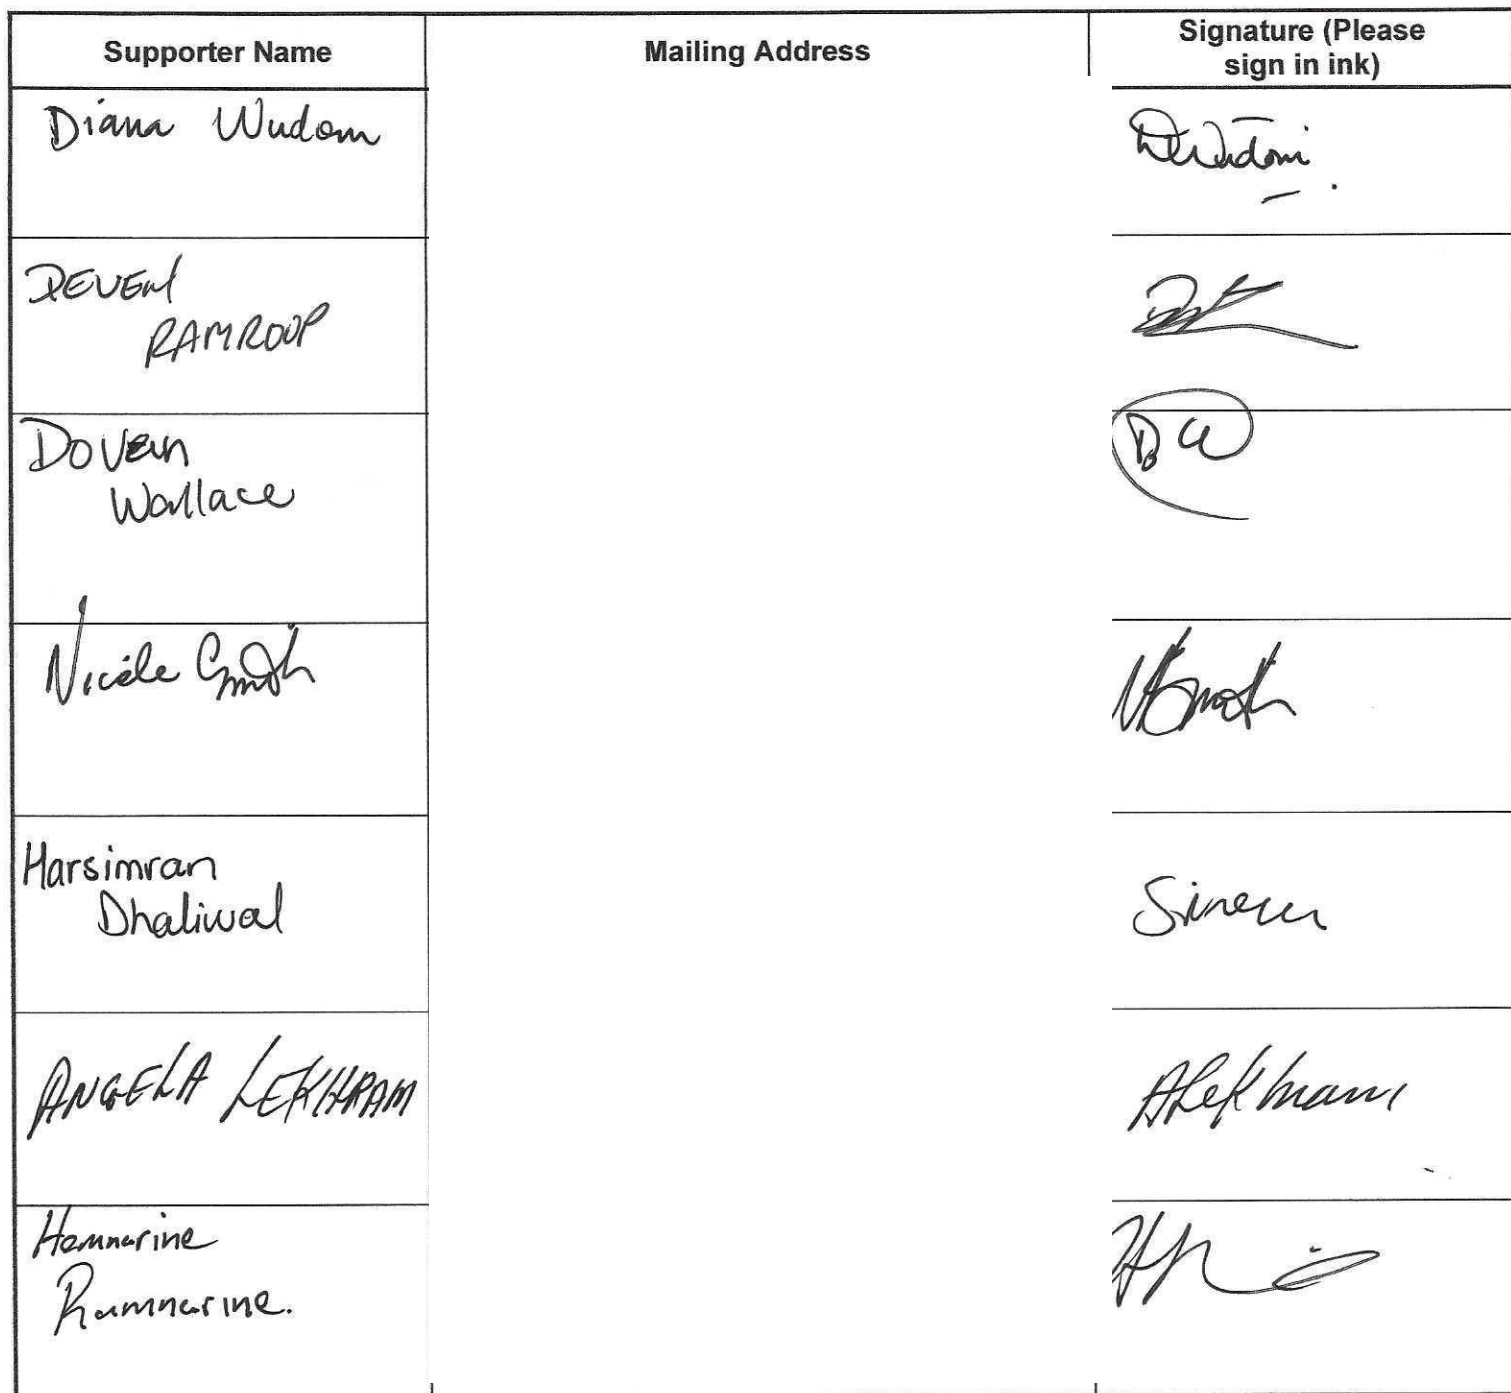 Supporter Name
Mailing Address
Signature (Please
sign in ink)
Diana Wudom
DEVEN
RAMROOP
Wallace
Nicole Smith
Harsimran
Dhaliwal
Simran
ANGELA LEKHRAM
ALekhram
Hemnarine
Ramnarine.